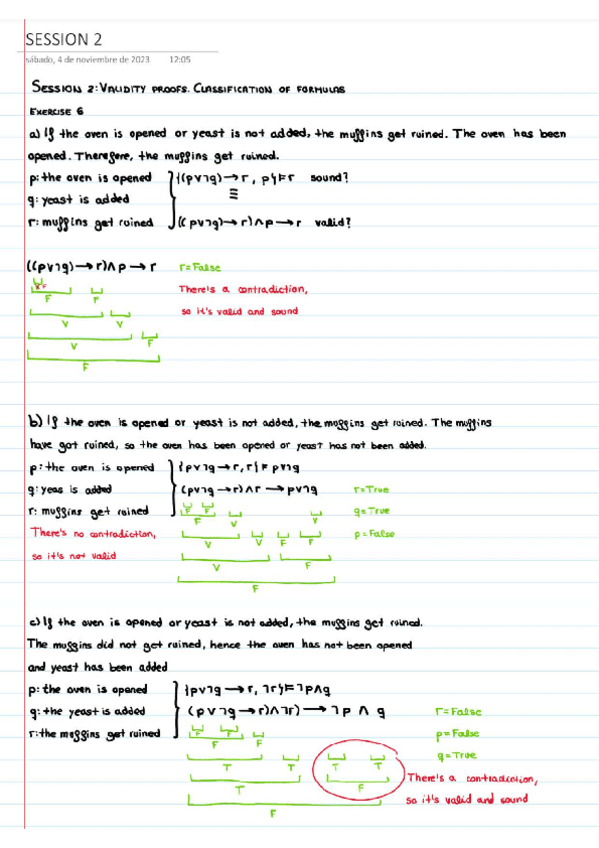 SESSION 2
sábado, 4 de noviembre de 2023 12:05
SESSION 2: VALIDITY PROOFS. CLASSIFICATION OF FORMULAS
EXERCISE 6
a) If the oven is opened or yeast is not added, the muffins get ruined. The oven has been
opened. Therefore, the muffins get ruined.
p: the oven is opened {(p∨¬q)→r, p}⊨r sound?
q: yeast is added ≡
r: muffins get ruined ((p∨¬q)→r)∧p→r valid?
((p∨¬q)→r)∧p→r r=False
F F There's a contradiction,
so it's valid and sound
V V
V F
F
b) If the oven is opened or yeast is not added, the muffins get ruined. The muffins
have got ruined, so the oven has been opened or yeast has not been added.
p: the oven is opened {p∨¬q→r, r}⊨p∨¬q
q: yeas is added (p∨¬q→r)∧r→p∨¬q r=True
r: muffins get ruined F F V V q=True
There's no contradiction, F p=False
so it's not valid V V F F
V F
F
c) If the oven is opened or yeast is not added, the muffins get ruined.
The muffins did not get ruined, hence the oven has not been opened
and yeast has been added
p: the oven is opened {p∨¬q→r, ¬r}⊨¬p∧q
q: the yeast is added (p∨¬q→r)∧¬r)→¬p∧q r=False
r: the muffins get ruined F F p=False
q=True
T T T T There's a contradiction,
T F so it's valid and sound
F